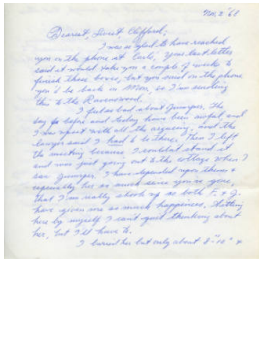 Nov. 2 '68
Dearest, Sweet Clifford,
I was so glad to have reached
you on the phone at Carls'. Your last letter
said it would take you a couple of weeks to
finish those boxes, but you said on the phone
you'd be back on Mon, so I am sending
this to the Ravenswood.
I feel so bad about Juniper. The
day before and today have been awful and
I was upset with all the arguing, and the
lawyer said I had to be there. Then I left
the meeting because I couldn't stand it
and was just going out to the cottage when I
saw Juniper. I have depended upon them &
especially her so much since you're gone,
that I am really shook up as both F. & J.
have given me so much happiness. Sitting
here by myself I can't quit thinking about
her, but I'll have to.
I buried her but only about 8-10" &